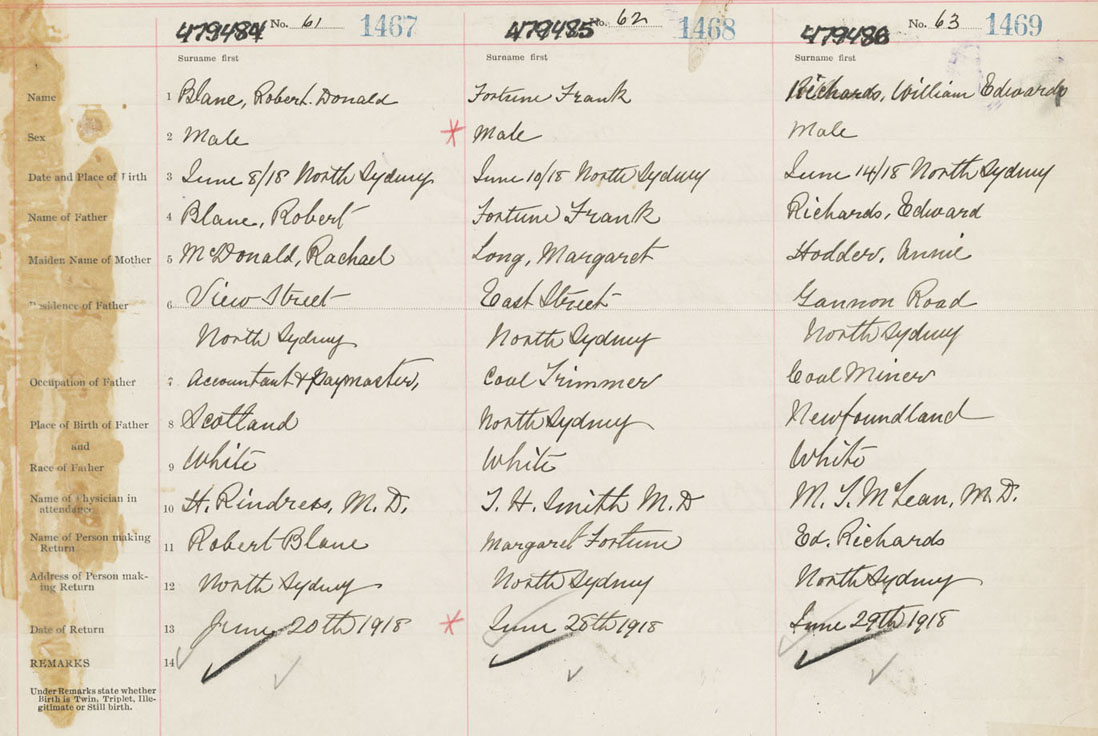 479484 No. 61 1467 479485 No. 62 1468 479486 No. 63 1469
Surname first Surname first Surname first
Name 1 Blane, Robert Donald Fortune Frank Richards, William Edward
Sex 2 Male Male Male
Date and Place of Birth 3 June 8/18 North Sydney June 10/18 North Sydney June 14/18 North Sydney
Name of Father 4 Blane, Robert Fortune Frank Richards, Edward
Maiden Name of Mother 5 McDonald, Rachael Long, Margaret Hodder, Annie
Residence of Father 6 View Street East Street Gannon Road
North Sydney North Sydney North Sydney
Occupation of Father 7 Accountant & Paymaster, Coal Trimmer Coal Miner
Place of Birth of Father 8 Scotland North Sydney Newfoundland
and
Race of Father 9 White White White
Name of Physician in
attendance 10 H. Rindress, M.D. T. H. Smith M.D M. T. McLean, M.D.
Name of Person making
Return 11 Robert Blane Margaret Fortune Ed. Richards
Address of Person mak-
ing Return 12 North Sydney North Sydney North Sydney
Date of Return 13 June 20th 1918 June 28th 1918 June 29th 1918
REMARKS 14
Under Remarks state whether
Birth is Twin, Triplet, Ille-
gitimate or Still birth.